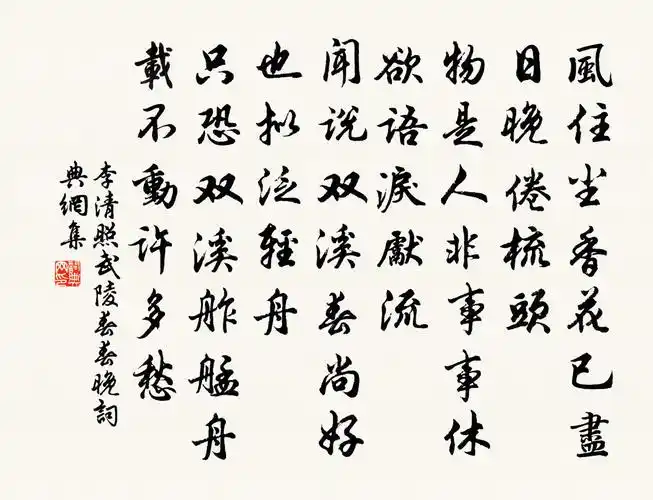 風住尘香花已盡
日晚倦梳頭
物是人非事事休
欲語淚獻流
聞説双溪春尚好
也拟泛輕舟
只恐双溪舴艋舟
載不動許多愁
李清照武陵春春晚詞
典網集